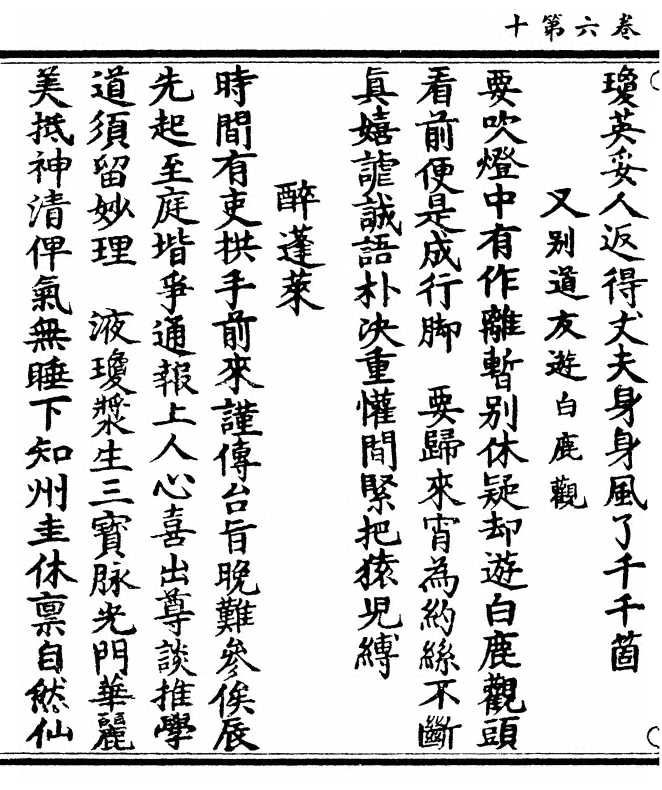 卷六第十
瓊英妥人返得丈夫身身風了千千箇
又别道友遊白鹿觀
要吹燈中有作離暫别休疑却遊白鹿觀頭
看前便是成行脚　要歸來宵為約絲不斷
真嬉謔誠語朴決重懽間緊把猿児縛
醉蓬萊
時間有吏拱手前來謹傳台旨晚難參俟辰
先起至庭堦爭通報上人心喜出尊談推學
道須留妙理　液瓊漿生三寶脉光門華麗
美抵神清俾氣無睡下知州圭休禀自然仙